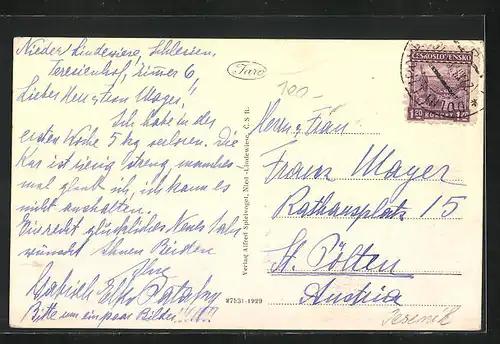 Nieder Lindewiese, Schlesien,
Teresienhof, Zimmer 6,
Lieber Herr u. Frau Mayer!
Ich habe in der
ersten Woche 5 kg verloren. Die
Kur ist riesig streng, manches-
mal glaub ich, ich kann es
nicht aushalten.
Ein recht glückliches Neues Jahr
wünscht Ihnen Beiden
Ihre
Bitte um ein paar Bilder!!!
Faro
Verlag Alfred Spielvogel, Nied.-Lindewiese, Č. S. R.
27531-1929
100-
ČESKOSLOVENSKO
1.20 KORUNY 1.20
Herrn u. Frau
Franz Mayer
Rathausplatz 15
St. Pölten
Austria
Jeseník